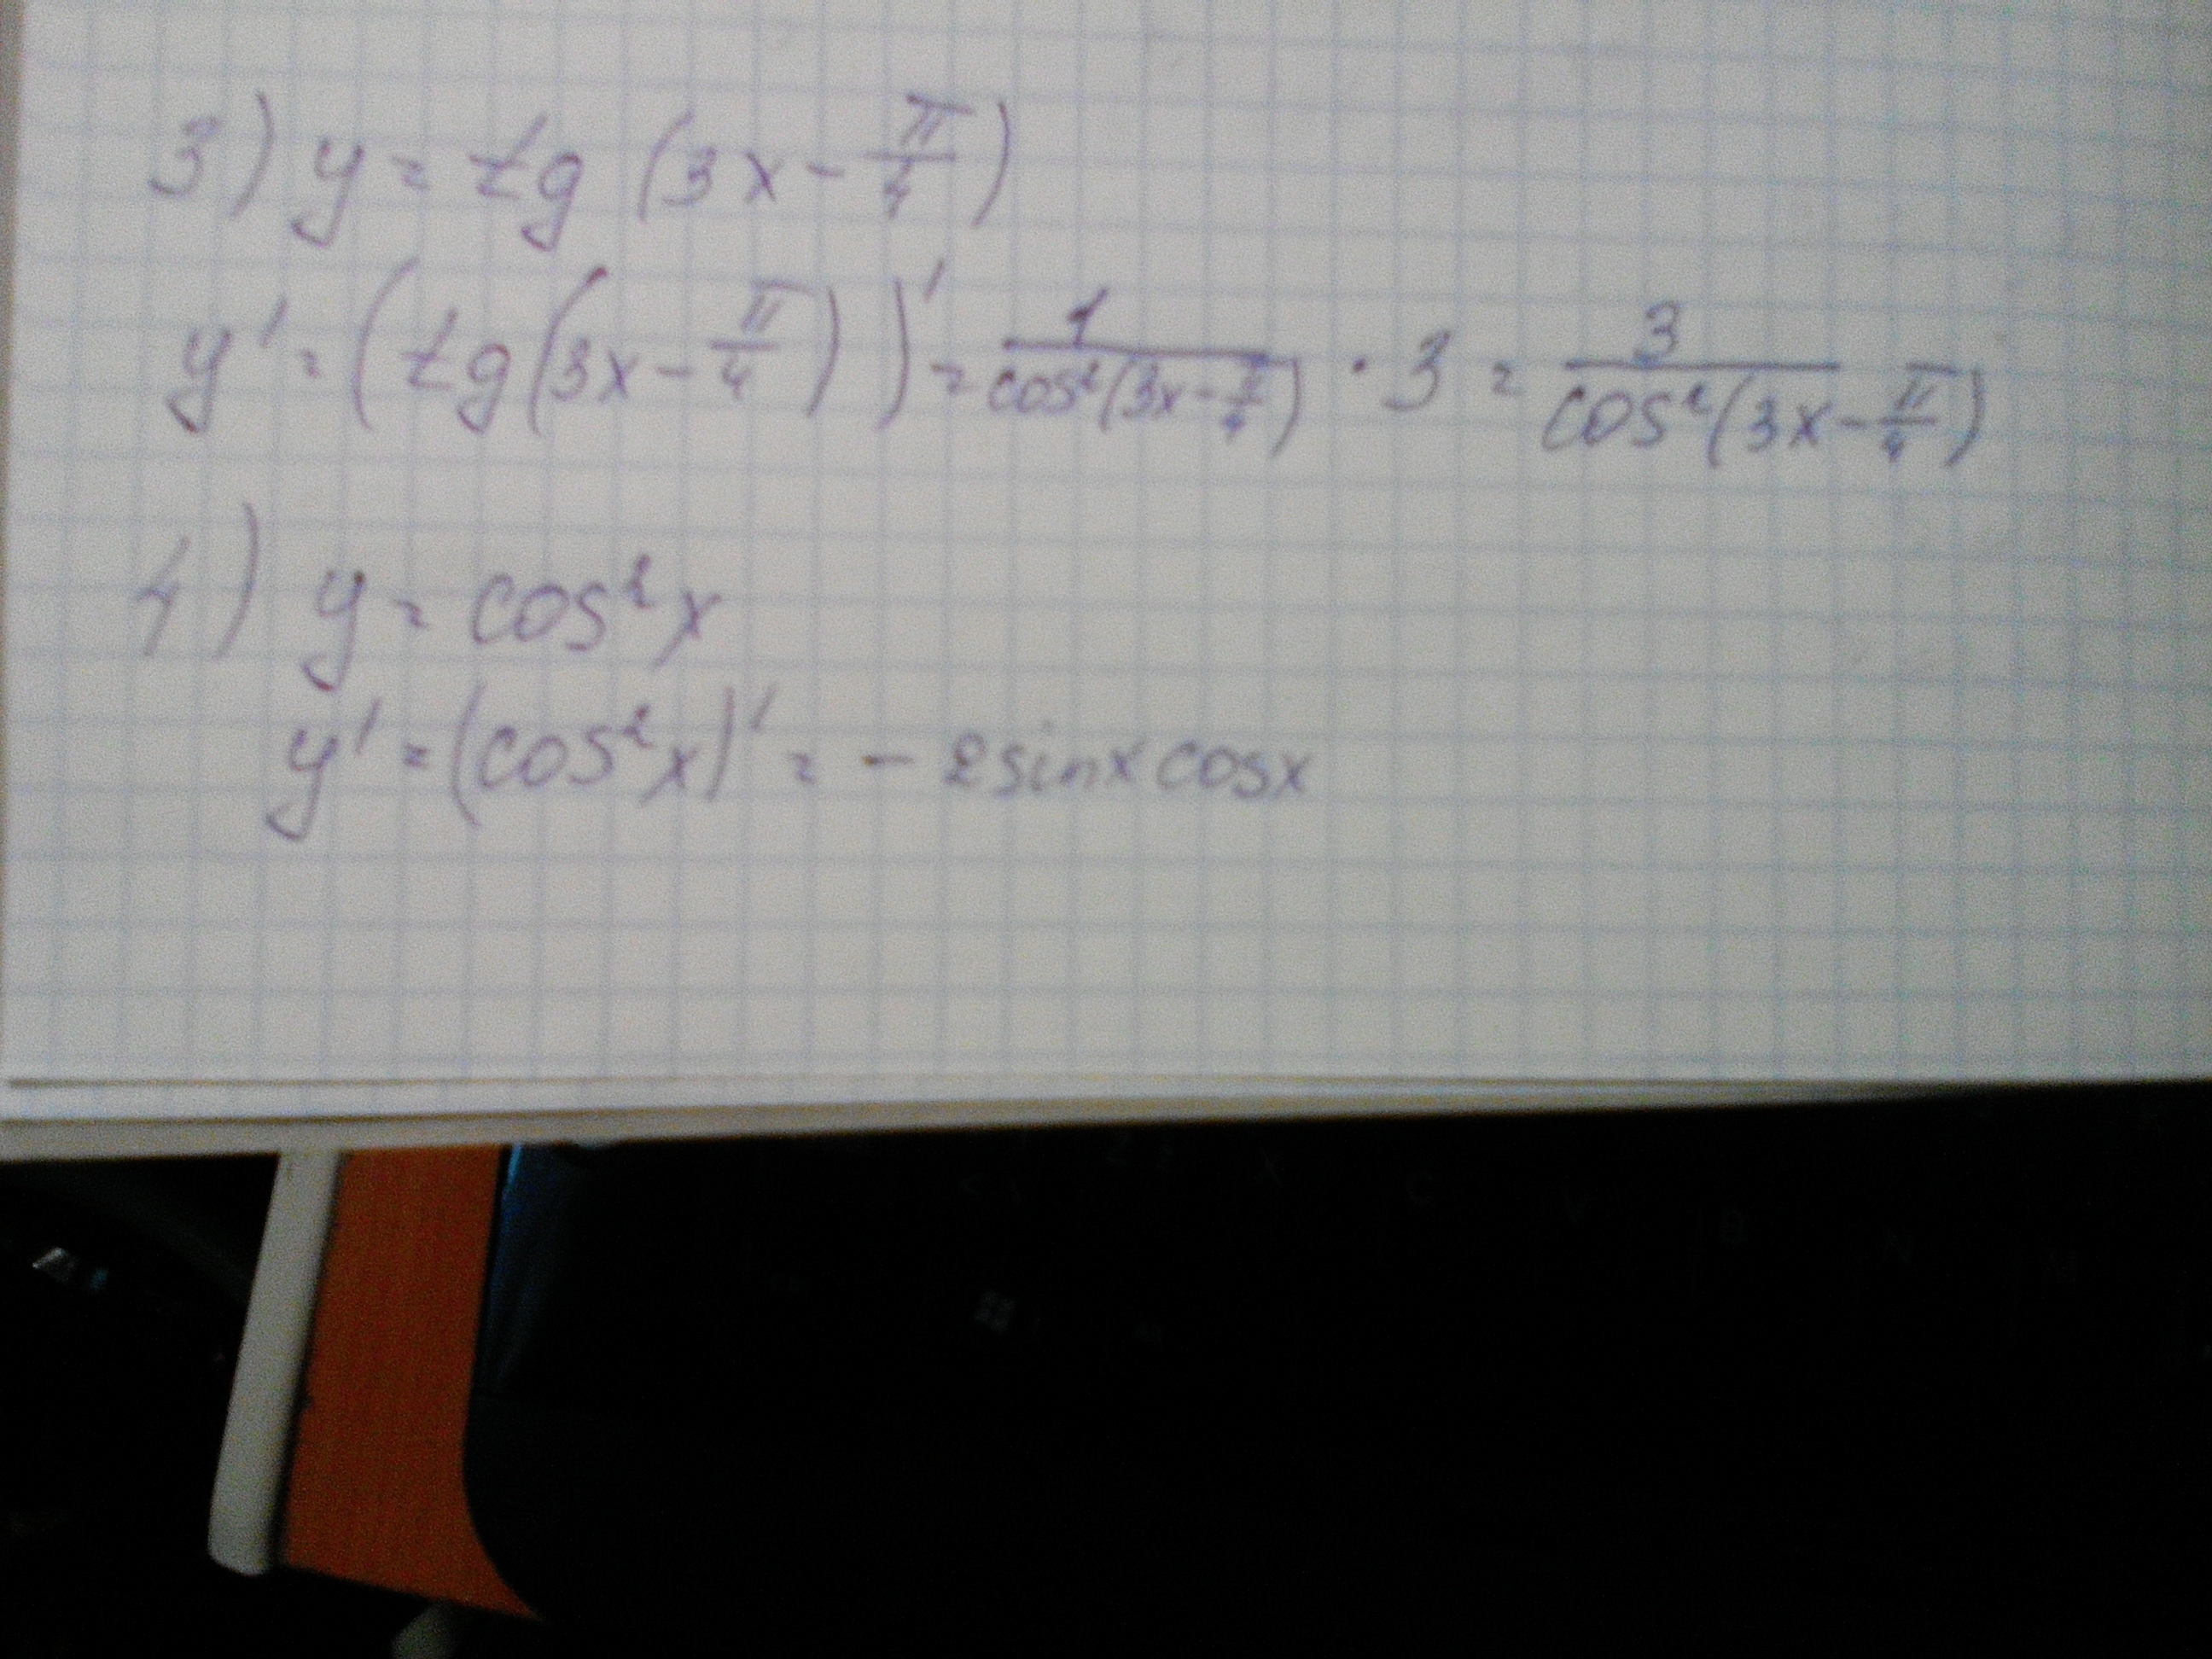 3) y = tg (3x - π/4)
y' = (tg(3x - π/4))' = 1/cos²(3x - π/4) · 3 = 3/cos²(3x - π/4)
4) y = cos²x
y' = (cos²x)' = - 2sinx cosx